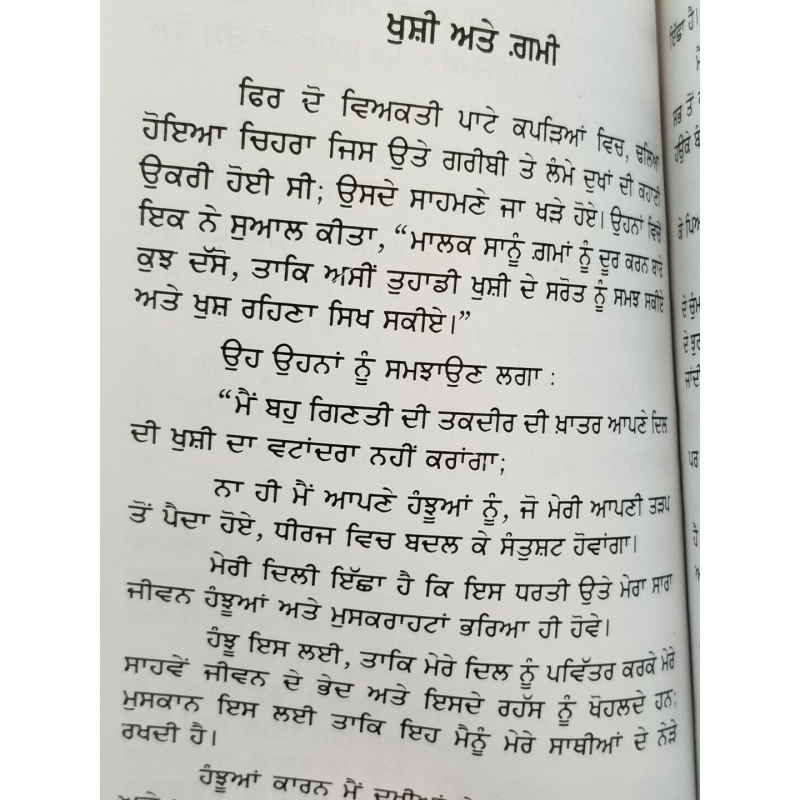 ਖੁਸ਼ੀ ਅਤੇ ਗ਼ਮੀ
ਫਿਰ ਦੋ ਵਿਅਕਤੀ ਪਾਟੇ ਕਪੜਿਆਂ ਵਿਚ, ਢਲਿਆ
ਹੋਇਆ ਚਿਹਰਾ ਜਿਸ ਉਤੇ ਗਰੀਬੀ ਤੇ ਲੰਮੇ ਦੁਖਾਂ ਦੀ ਕਹਾਣੀ
ਉਕਰੀ ਹੋਈ ਸੀ; ਉਸਦੇ ਸਾਹਮਣੇ ਜਾ ਖੜੇ ਹੋਏ। ਉਹਨਾਂ ਵਿਚੋਂ
ਇਕ ਨੇ ਸੁਆਲ ਕੀਤਾ, “ਮਾਲਕ ਸਾਨੂੰ ਗ਼ਮਾਂ ਨੂੰ ਦੂਰ ਕਰਨ ਬਾਰੇ
ਕੁਝ ਦੱਸੋ, ਤਾਕਿ ਅਸੀਂ ਤੁਹਾਡੀ ਖੁਸ਼ੀ ਦੇ ਸਰੋਤ ਨੂੰ ਸਮਝ ਸਕੀਏ
ਅਤੇ ਖੁਸ਼ ਰਹਿਣਾ ਸਿਖ ਸਕੀਏ।”
ਉਹ ਉਹਨਾਂ ਨੂੰ ਸਮਝਾਉਣ ਲਗਾ :
“ਮੈਂ ਬਹੁ ਗਿਣਤੀ ਦੀ ਤਕਦੀਰ ਦੀ ਖ਼ਾਤਰ ਆਪਣੇ ਦਿਲ
ਦੀ ਖੁਸ਼ੀ ਦਾ ਵਟਾਂਦਰਾ ਨਹੀਂ ਕਰਾਂਗਾ;
ਨਾ ਹੀ ਮੈਂ ਆਪਣੇ ਹੰਝੂਆਂ ਨੂੰ, ਜੋ ਮੇਰੀ ਆਪਣੀ ਤੜਪ
ਤੋਂ ਪੈਦਾ ਹੋਏ, ਧੀਰਜ ਵਿਚ ਬਦਲ ਕੇ ਸੰਤੁਸ਼ਟ ਹੋਵਾਂਗਾ।
ਮੇਰੀ ਦਿਲੀ ਇੱਛਾ ਹੈ ਕਿ ਇਸ ਧਰਤੀ ਉਤੇ ਮੇਰਾ ਸਾਰਾ
ਜੀਵਨ ਹੰਝੂਆਂ ਅਤੇ ਮੁਸਕਰਾਹਟਾਂ ਭਰਿਆ ਹੀ ਹੋਵੇ।
ਹੰਝੂ ਇਸ ਲਈ, ਤਾਕਿ ਮੇਰੇ ਦਿਲ ਨੂੰ ਪਵਿੱਤਰ ਕਰਕੇ ਮੇਰੇ
ਸਾਹਵੇਂ ਜੀਵਨ ਦੇ ਭੇਦ ਅਤੇ ਇਸਦੇ ਰਹੱਸ ਨੂੰ ਖੋਹਲਦੇ ਹਨ;
ਮੁਸਕਾਨ ਇਸ ਲਈ ਤਾਕਿ ਇਹ ਮੈਨੂੰ ਮੇਰੇ ਸਾਥੀਆਂ ਦੇ ਨੇੜੇ
ਰਖਦੀ ਹੈ।
ਹੰਝੂਆਂ ਕਾਰਨ ਮੈਂ